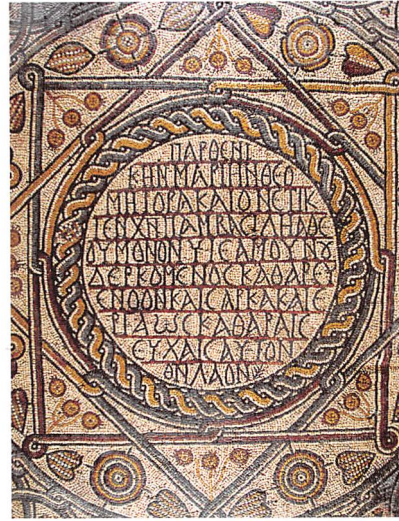 ΠΑΡΘΕΝΙ
ΚΗΝΜΑΡΙΗΝΘΕΟ
ΜΗΤΟΡΑΚΑΙΟΝΕΤΙΚ
ΤΕΝΧΝΠΑΜΒΑCΙΛΗΑΘΕ
ΟΥΜΟΝΟΝΥΙΕΑΜΟΥΝΟΥ
ΔΕΡΚΟΜΕΝΟCΚΑΘΑΡΕΥ
ΕΝΟΟΝΚΑΙCΑΡΚΑΚΑΙΕ
ΚΑΘΑΡΑΙC
ΕΥΧΑΙCΑΥΤΟΝ
ΛΑΟΝ